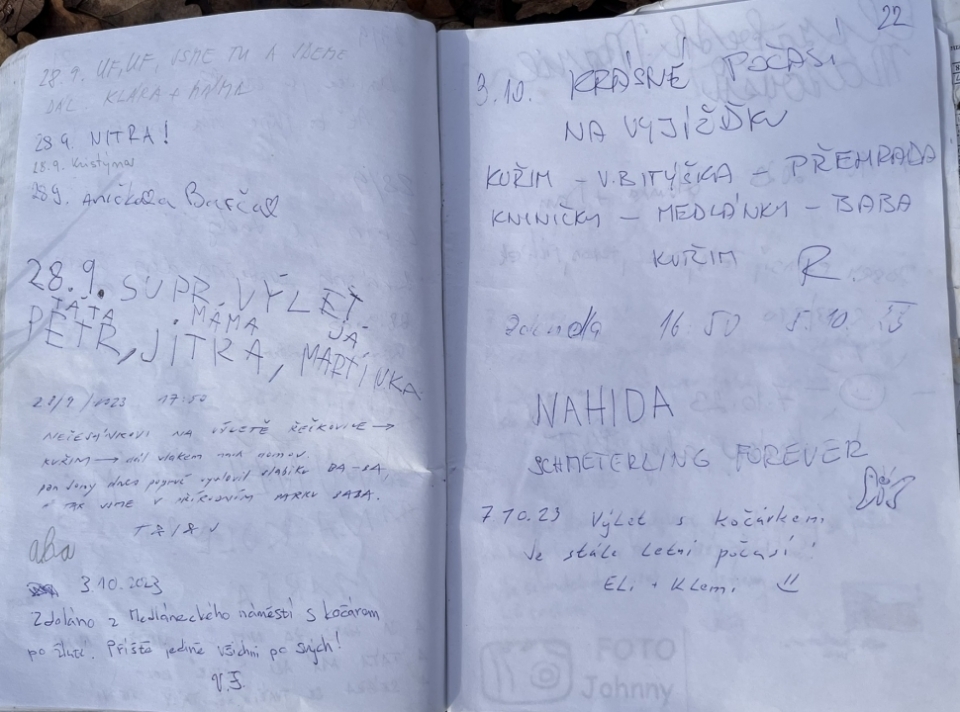 28.9. UF, UF, JSME TU A JDEME
DÁL. KLÁRA + MÍMA
28.9. NITRA!
28.9. Kristýna
28.9. Anička a Barča
28.9. SUPR VÝLET.
TÁTA MÁMA JÁ
PETR, JITKA, MARTÍNKA
28/9/2023 17:50
NA VÝLETĚ ŘEČKOVICE →
KUŘIM → dál vlakem
BA-BA,
V BABA.
aba
3.10.2023
Zdoláno z Medláneckého náměstí s kočárem
po žluté. Příště jedině všichni po svých!
V.J.
22
3.10. KRÁSNÉ POČASÍ
NA VYJÍŽĎKU
KUŘIM - V.BITÝŠKA - PŘEHRADA
KNINIČKY - MEDLÁNKY - BABA
KUŘIM R.
16 50 5.10.
NAHIDA
SCHMETERLING FOREVER
7.10.23 Výlet s kočárkem,
je stále letní počasí!
Eli + Klemi
FOTO
Johnny